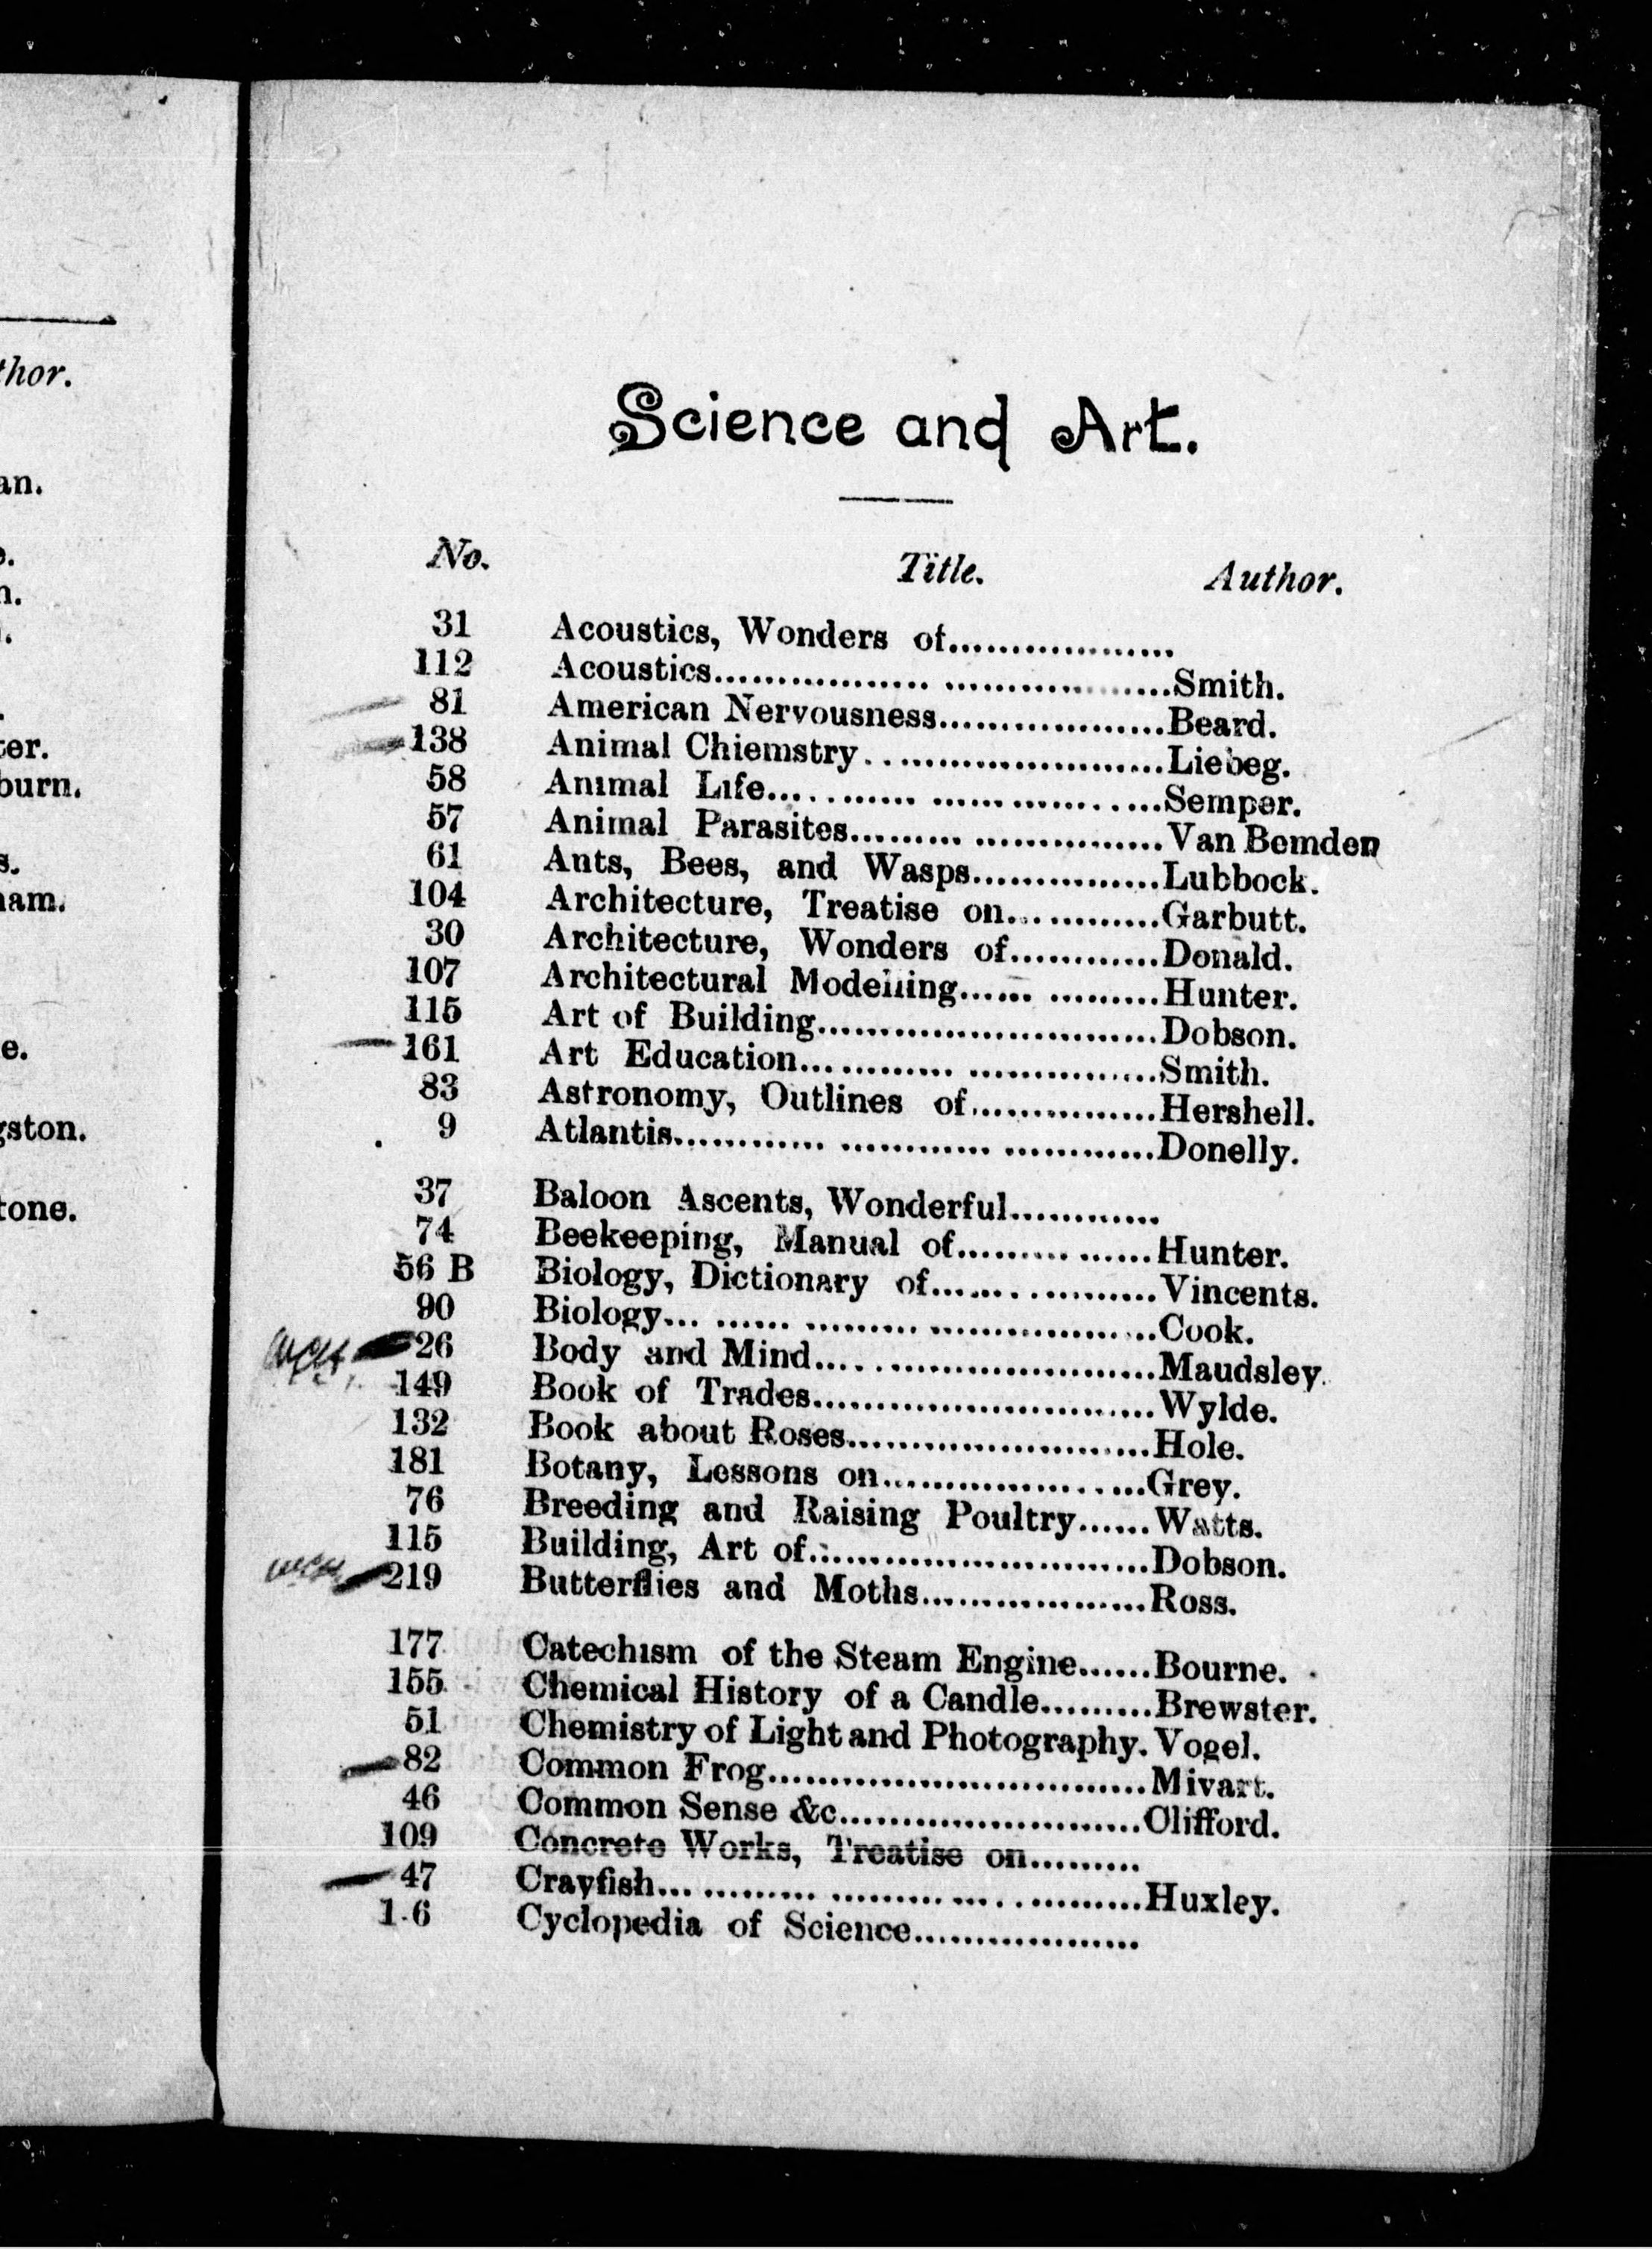 thor.
an.
ter.
burn.
ham.
gston.
tone.
Science and Art.
No. Title. Author.
31 Acoustics, Wonders of..................
112 Acoustics.................. ..................Smith.
81 American Nervousness..................Beard.
138 Animal Chiemstry..........................Liebeg.
58 Animal Life............ ..................Semper.
57 Animal Parasites......... ...............Van Bemden
61 Ants, Bees, and Wasps...............Lubbock.
104 Architecture, Treatise on............Garbutt.
30 Architecture, Wonders of............Donald.
107 Architectural Modelling...... .........Hunter.
115 Art of Building...........................Dobson.
161 Art Education............ ...............Smith.
83 Astronomy, Outlines of...............Hershell.
9 Atlantis............ ............ ............Donelly.
37 Baloon Ascents, Wonderful............
74 Beekeeping, Manual of......... ......Hunter.
56 B Biology, Dictionary of..................Vincents.
90 Biology... ...... ......... ..................Cook.
26 Body and Mind...........................Maudsley.
149 Book of Trades...........................Wylde.
132 Book about Roses........................Hole.
181 Botany, Lessons on.....................Grey.
76 Breeding and Raising Poultry......Watts.
115 Building, Art of...........................Dobson.
219 Butterflies and Moths..................Ross.
177 Catechism of the Steam Engine......Bourne.
155 Chemical History of a Candle.........Brewster.
51 Chemistry of Light and Photography. Vogel.
82 Common Frog..............................Mivart.
46 Common Sense &c........................Clifford.
109 Concrete Works, Treatise on.........
47 Crayfish... ......... ......... ... .........Huxley.
1.6 Cyclopedia of Science..................